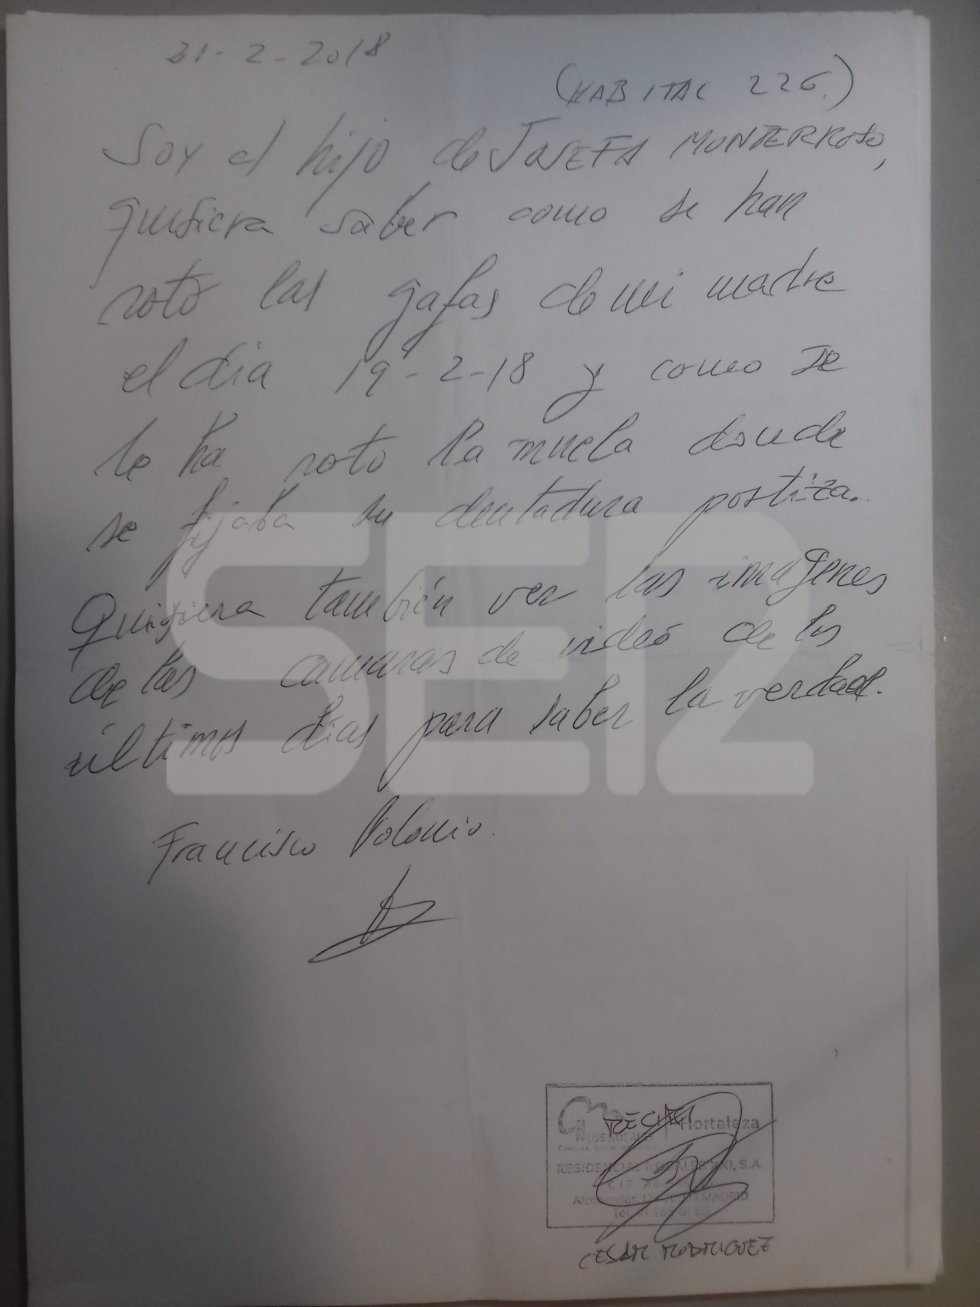 21-2-2018
(HABITAC 226.)
Soy el hijo de JOSEFA MONTERROSO,
quisiera saber como se han
roto las gafas de mi madre
el dia 19-2-18 y como se
le ha roto la muela donde
se fijaba su dentadura postiza.
Quisiera también ver las imagenes
de las camaras de video de los
últimos dias para saber la verdad.
SER
Francisco Polonio.
Hortaleza
RESIDENCIAL S.A.
MADRID
CESAR RODRIGUEZ